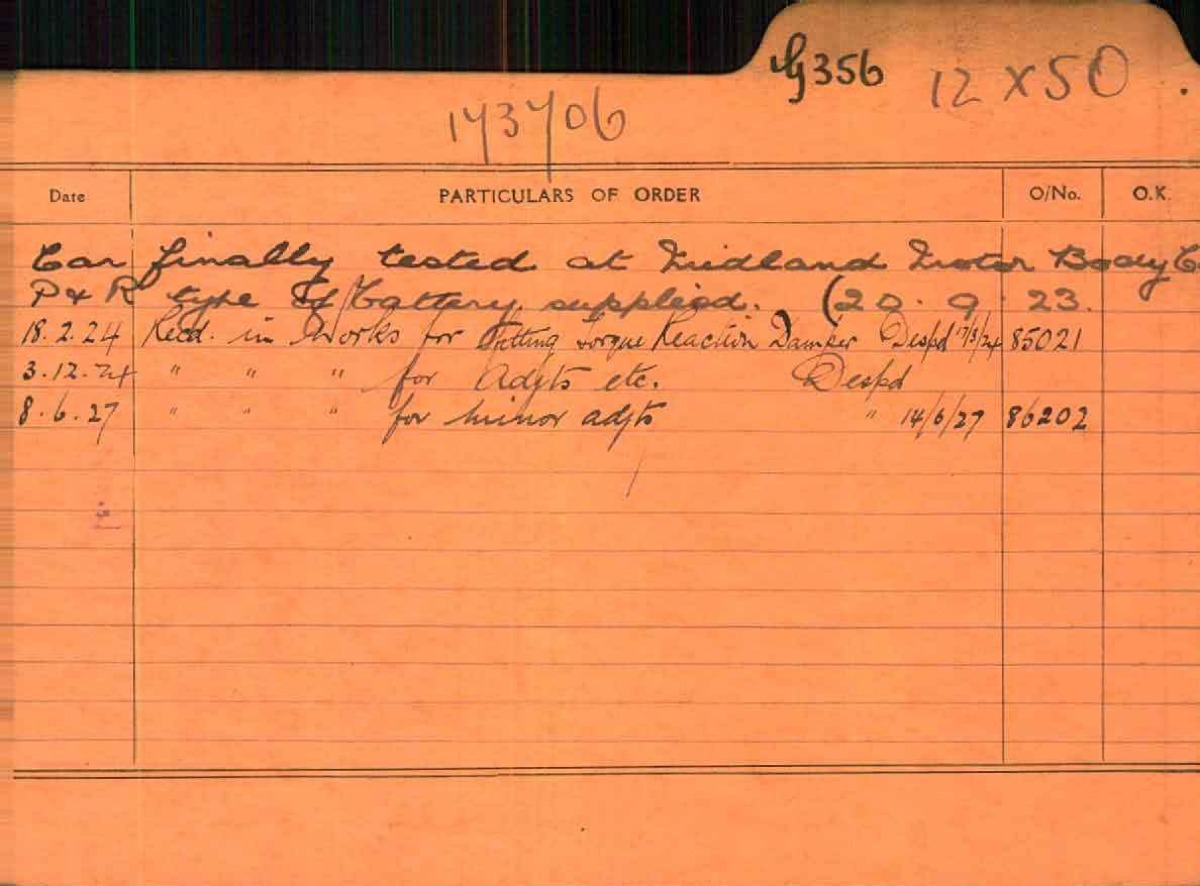 G356 12 x 50
173706
Date PARTICULARS OF ORDER O/No. O.K.
Car finally tested at Midland Motor Body C
P & R type of battery supplied. (20.9.23.
18.2.24 Recd. in Works for Fitting Torque Reaction Damper Despd 17/3/24 85021
3.12.24 " " " for Adjts etc. Despd
8.6.27 " " " for minor adjts " 14/6/27 86202